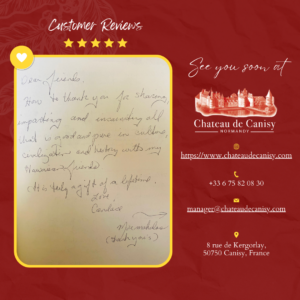 Customer Reviews
Dear friends,
How to thank you for sharing
imparting and incarnating all
that is good and pure in culture,
civilization and history with my
friends!
It is truly a gift of a lifetime.
Love,
Candice
See you soon at
Chateau de Canisy
NORMANDY
https://www.chateaudecanisy.com
+33 6 75 82 08 30
manager@chateaudecanisy.com
8 rue de Kergorlay,
50750 Canisy, France